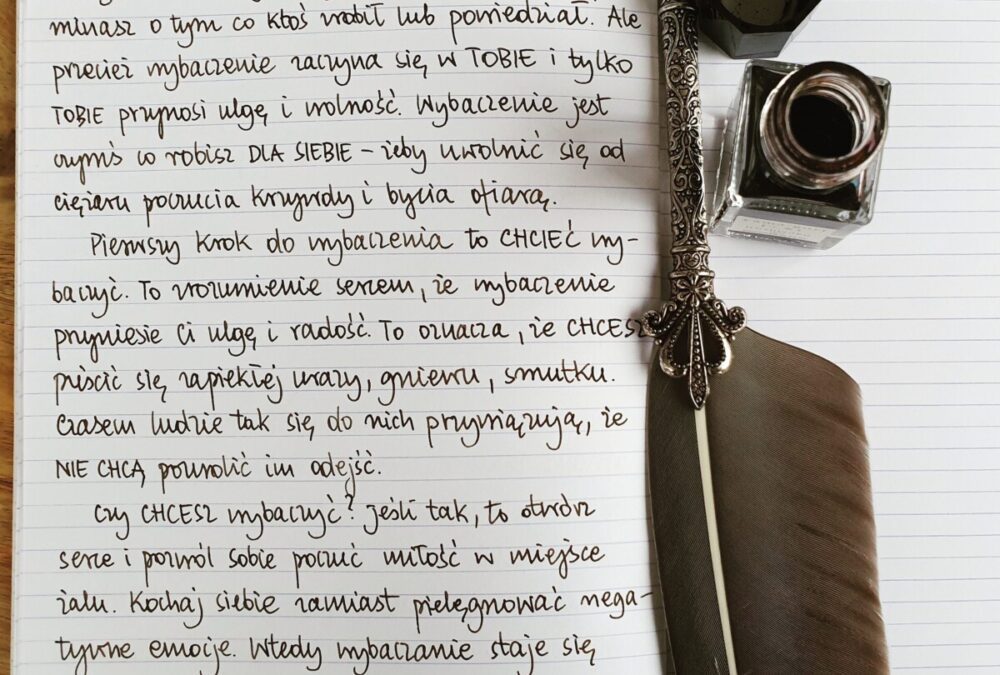 minasz o tym co ktoś zrobił lub powiedział. Ale
przecież wybaczenie zaczyna się w TOBIE i tylko
TOBIE przynosi ulgę i wolność. Wybaczenie jest
czymś co robisz DLA SIEBIE – żeby uwolnić się od
ciężaru poczucia krzywdy i bycia ofiarą.
Pierwszy krok do wybaczenia to CHCIEĆ wy-
baczyć. To zrozumienie sercem, że wybaczenie
przyniesie Ci ulgę i radość. To oznacza, że CHCESZ
puścić się zapiekłej urazy, gniewu, smutku.
Czasem ludzie tak się do nich przywiązują, że
NIE CHCĄ pozwolić im odejść.
Czy CHCESZ wybaczyć? Jeśli tak, to otwórz
serce i pozwól sobie poczuć miłość w miejsce
żalu. Kochaj siebie zamiast pielęgnować nega-
tywne emocje. Wtedy wybaczanie staje się